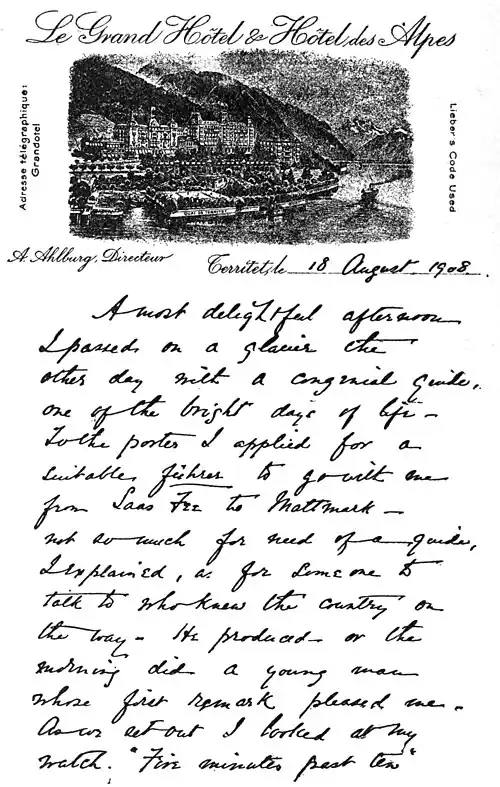 Le Grand Hôtel & Hôtel des Alpes
Adresse télégraphique:
Grandotel
Lieber's Code Used
A. Ahlburg, Directeur
Territet, le 18 August 1908.
A most delightful afternoon
I passed on a glacier the
other day with a congenial guide,
one of the bright days of life –
To the porter I applied for a
suitable führer to go with me
from Saas Fee to Mattmark –
not so much for need of a guide,
I explained, as for someone to
talk to who knew the country on
the way – He produced – or the
morning did a young man
whose first remark pleased me.
As we set out I looked at my
watch. "Five minutes past ten"